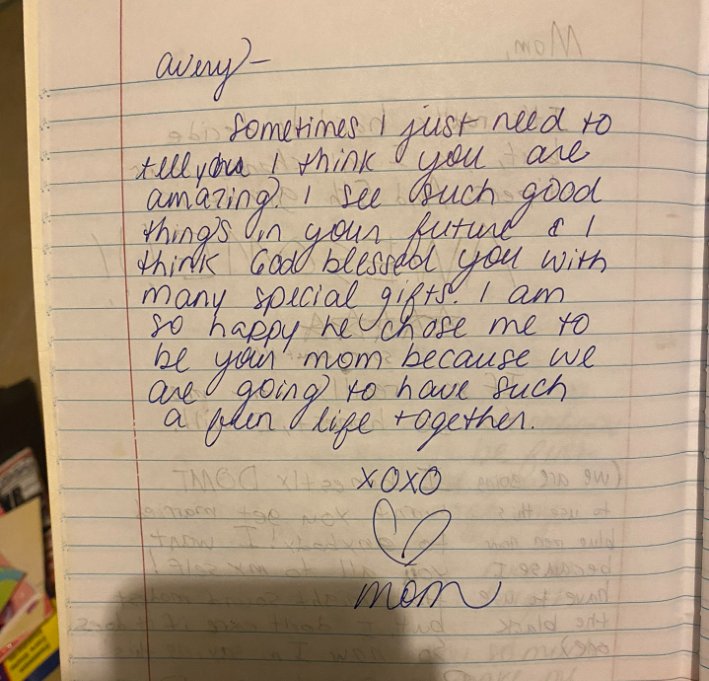 avery-
Sometimes I just need to
tell you I think you are
amazing. I see such good
things in your future & I
think God blessed you with
many special gifts. I am
so happy he chose me to
be your mom because we
are going to have such
a fun life together.
XOXO
♡
mom